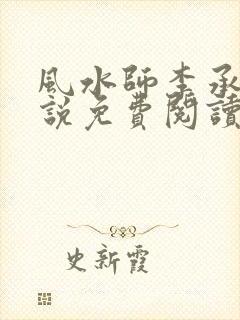 風水師李承
說免費閱讀
史新霞